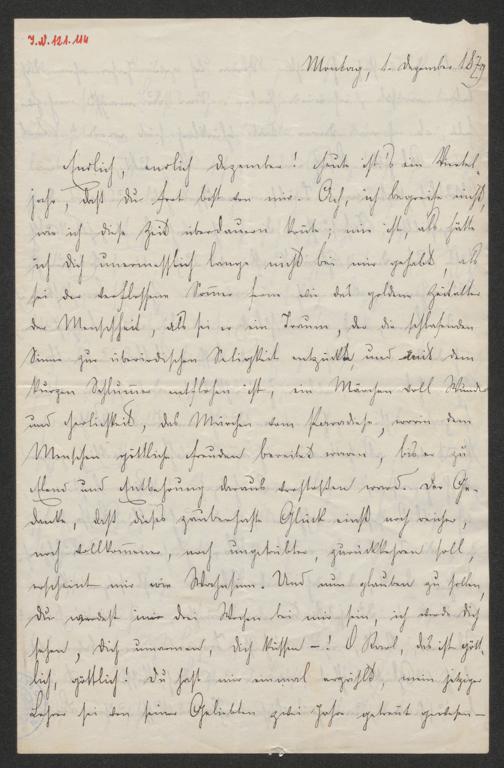 I.N. 121.114
Montag, 1. Dezember 1879
Endlich, endlich Dezember! Heute ist's ein Viertel-
jahr, daß Du fort bist von mir. Ach, ich begreife nicht,
wie ich diese Zeit überdauern konnte; mir ist, als hätte
ich Dich unermesslich lange nicht bei mir gehabt, als
sei der verflossene Sommer fern wie das goldene Zeitalter
der Menschheit, als sei er ein Traum, der die schlafenden
Sinne zur überirdischen Seligkeit entzückte, und mit dem
kurzen Schlummer entflohen ist, ein Märchen voll Wunder
und Herrlichkeit, das Märchen vom Paradiese, worin dem
Menschen göttliche Freuden bereitet waren, bis er zu
Elend und Entbehrung daraus verstoßen ward. Der Ge-
danke, daß dieses zauberhafte Glück einst noch reicher,
noch vollkommener, noch ungetrübter, zurückkehren soll,
erscheint mir wie Wahnsinn. Und nun glauben zu sollen,
Du werdest in drei Wochen bei mir sein, ich werde Dich
sehen, Dich umarmen, Dich küssen –! O Karl, das ist gött-
lich, göttlich! Du hast mir einmal erzählt, mein jetziger
Lehrer sei von seiner Geliebten zwei Jahre getrennt gewesen –